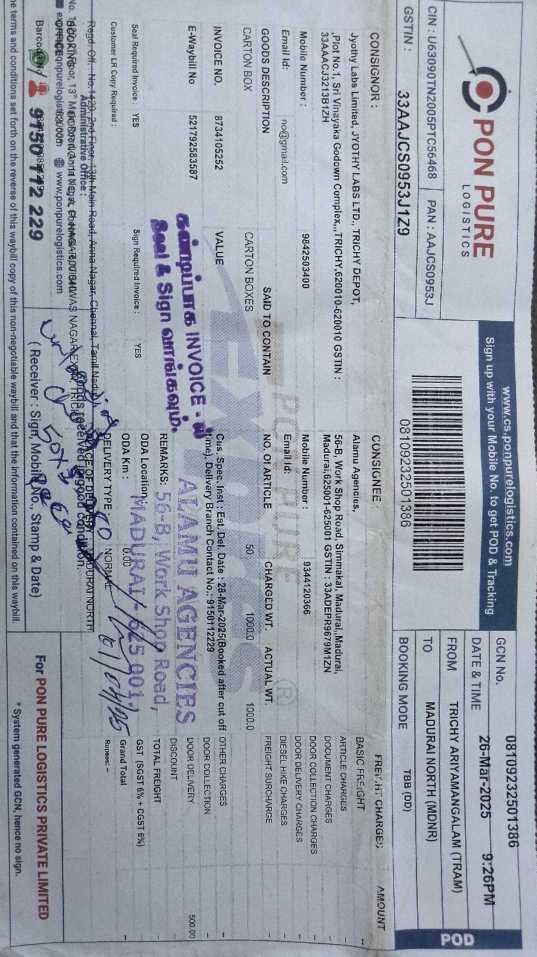 PON PURE
LOGISTICS
www.cs.ponpurelogistics.com
Sign up with your Mobile No. to get POD & Tracking
POD
CIN : U63090TN2005PTC56468
PAN : AAJCS0953J
GSTIN : 33AAJCS0953J1Z9
08109232501386
GCN No. 08109232501386
DATE & TIME 26-Mar-2025 9:26PM
FROM TRICHY ARIYAMANGALAM (TRAM)
TO MADURAI NORTH (MDNR)
BOOKING MODE TBB (DD)
CONSIGNOR :
Jyothy Labs Limited, JYOTHY LABS LTD., TRICHY DEPOT,
,Plot No.1, Sri Vinayaka Godown Complex,,,TRICHY,620010-620010 GSTIN :
33AAACJ3213B1ZH
Mobile Number : 9842503400
Email Id: no@gmail.com
CONSIGNEE
Alamu Agencies,
56-B, Work Shop Road, Simmakal, Madurai,,Madurai,
Madurai,625001-625001 GSTIN : 33ADEPR9679M1ZN
Mobile Number : 9344120366
Email Id:
GOODS DESCRIPTION SAID TO CONTAIN NO. OF ARTICLE CHARGED WT. ACTUAL WT.
CARTON BOX CARTON BOXES 50 1000.0 1000.0
INVOICE NO. 8734105252 VALUE
E-Waybill No 521792583587
Seal Required Invoice : YES Sign Required Invoice : YES
Customer LR Copy Required :
Cus. Spec. Inst : Est.Del. Date : 28-Mar-2025(Booked after cut off
time), Delivery Branch Contact No.: 9150112229
REMARKS:
ODA Location
ODA Km : 0.00
DELIVERY TYPE : NORMAL
FREIGHT CHARGES AMOUNT
BASIC FREIGHT
ARTICLE CHARGES
DOCUMENT CHARGES
DOOR COLLECTION CHARGES
DOOR DELIVERY CHARGES
DIESEL HIKE CHARGES
FREIGHT SURCHARGE
OTHER CHARGES
DOOR COLLECTION
DOOR DELIVERY 500.00
DISCOUNT
TOTAL FREIGHT
GST (SGST 6% + CGST 6%)
Grand Total
Rupees: -
கண்டிப்பாக INVOICE -ல்
Seal & Sign வாங்கவும்.
ALAMU AGENCIES
56-B, Work Shop Road,
MADURAI - 625 001
Regd. Off.: No.1420, 2nd Floor, 13th Main Road, Anna Nagar, Chennai, Tamil Nadu
Administrative Office :
www.ponpurelogistics.com
9150 112 229
Goods received in good condition.
( Receiver : Sign, Mobile No., Stamp & Date)
For PON PURE LOGISTICS PRIVATE LIMITED
* System generated GCN, hence no sign.
the terms and conditions set forth on the reverse of this waybill copy of this non-negotiable waybill and that the information contained on this waybill.